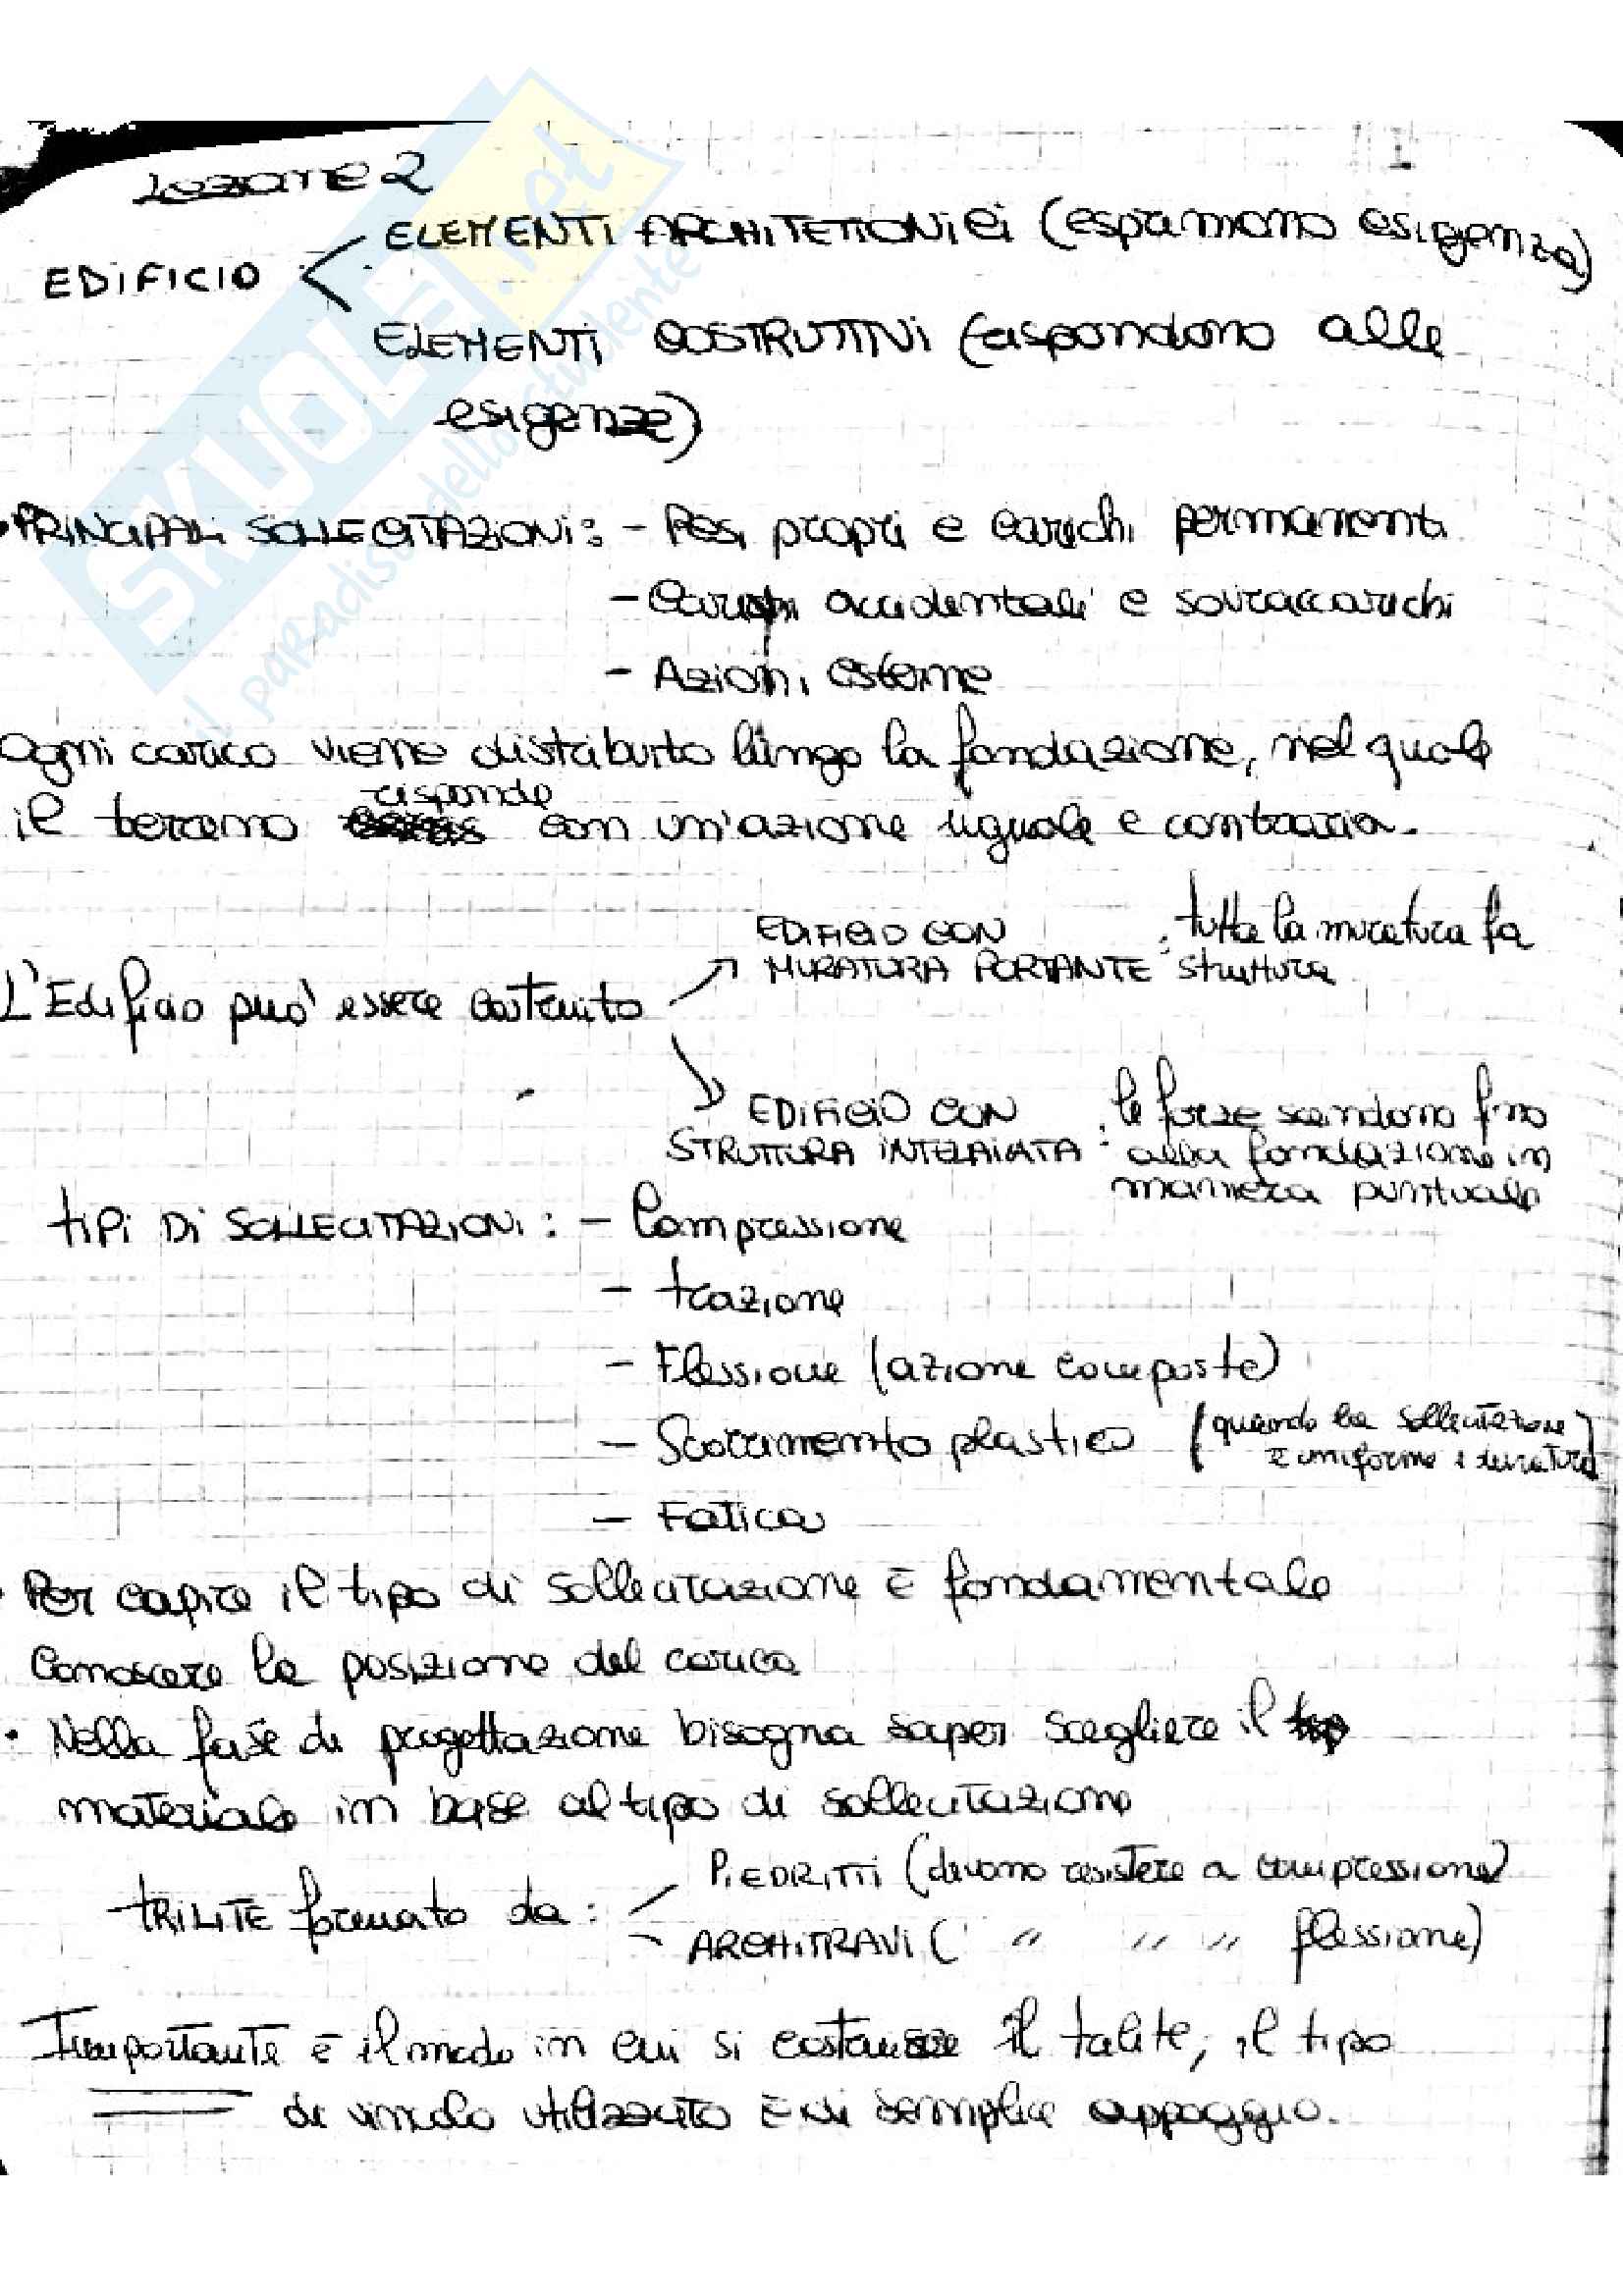 Lezione 2
ELEMENTI ARCHITETTONICI (esprimono esigenza)
EDIFICIO <
ELEMENTI COSTRUTTIVI (rispondono alle
esigenze)
• PRINCIPALI SOLLECITAZIONI: - Pesi propri e carichi permanenti
- Carichi accidentali e sovraccarichi
- Azioni esterne
Ogni carico viene distribuito lungo la fondazione, nel quale
risponde
il terreno con un'azione uguale e contraria.
EDIFICIO CON : tutta la muratura fa
MURATURA PORTANTE struttura
L'Edificio può essere costruito
EDIFICIO CON : le forze scendono fino
STRUTTURA INTELAIATA alla fondazione in
maniera puntuale
TIPI DI SOLLECITAZIONI: - Compressione
- trazione
- Flessione (azione composta)
- Scorrimento plastico (quando la sollecitazione
è uniforme e duratura)
- Fatica
• Per capire il tipo di sollecitazione è fondamentale
Conoscere la posizione del carico
• Nella fase di progettazione bisogna saper scegliere il
materiale in base al tipo di sollecitazione
PIEDRITTI (devono resistere a compressione)
TRILITE formato da: <
ARCHITRAVI ( " " " flessione)
Importante è il modo in cui si costruisce il trilite, il tipo
di vincolo utilizzato è di semplice appoggio.
SKUOLA.net
il paradiso dello studente